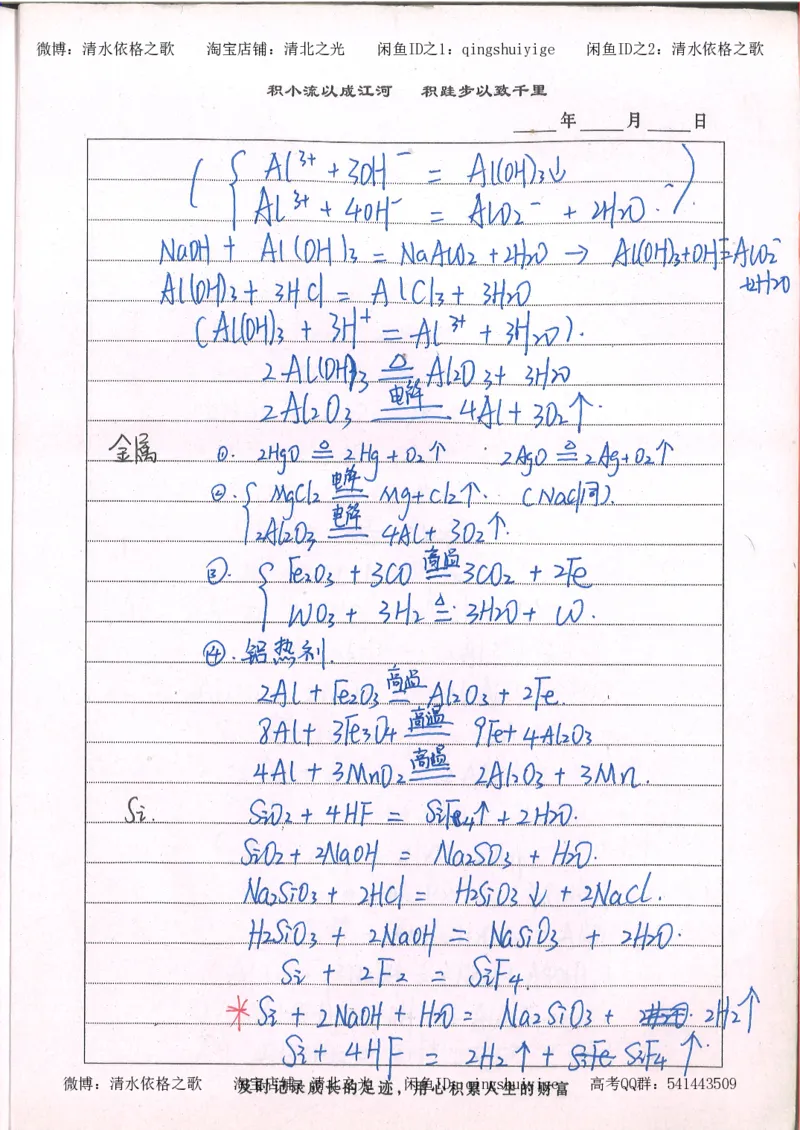 微博：清水依格之歌 淘宝店铺：清北之光 闲鱼ID之1：qingshuiyige 闲鱼ID之2：清水依格之歌
积小流以成江河 积跬步以致千里
年 月 日
( { Al³⁺ + 3OH⁻ = Al(OH)₃↓
Al³⁺ + 4OH⁻ = AlO₂⁻ + 2H₂O. )
NaOH + Al(OH)₃ = NaAlO₂ + 2H₂O → Al(OH)₃+OH⁻=AlO₂⁻
+2H₂O
Al(OH)₃ + 3HCl = AlCl₃ + 3H₂O
(Al(OH)₃ + 3H⁺ = Al³⁺ + 3H₂O).
2Al(OH)₃ ≜ Al₂O₃ + 3H₂O
2Al₂O₃ 电解 4Al + 3O₂↑.
金属 ①. 2HgO ≜ 2Hg + O₂↑ 2AgO ≜ 2Ag + O₂↑
②. { MgCl₂ 电解 Mg + Cl₂↑. (NaCl同).
2Al₂O₃ 电解 4Al + 3O₂↑.
③. { Fe₂O₃ + 3CO 高温 3CO₂ + 2Fe
WO₃ + 3H₂ ≜ 3H₂O + W.
④. 铝热剂.
2Al + Fe₂O₃ 高温 Al₂O₃ + 2Fe.
8Al + 3Fe₃O₄ 高温 9Fe + 4Al₂O₃
4Al + 3MnO₂ 高温 2Al₂O₃ + 3Mn.
Si. SiO₂ + 4HF = SiF₄↑ + 2H₂O.
SiO₂ + 2NaOH = Na₂SO₃ + H₂O.
Na₂SiO₃ + 2HCl = H₂SiO₃↓ + 2NaCl.
H₂SiO₃ + 2NaOH = NaSiO₃ + 2H₂O.
Si + 2F₂ = SiF₄.
* Si + 2NaOH + H₂O = Na₂SiO₃ + 2H₂↑
Si + 4HF = 2H₂↑ + SiF₄↑.
及时记录成长的足迹，用心积累人生的财富
微博：清水依格之歌 淘宝店铺：清北之光 闲鱼ID：qingshuiyige 高考QQ群：541443509